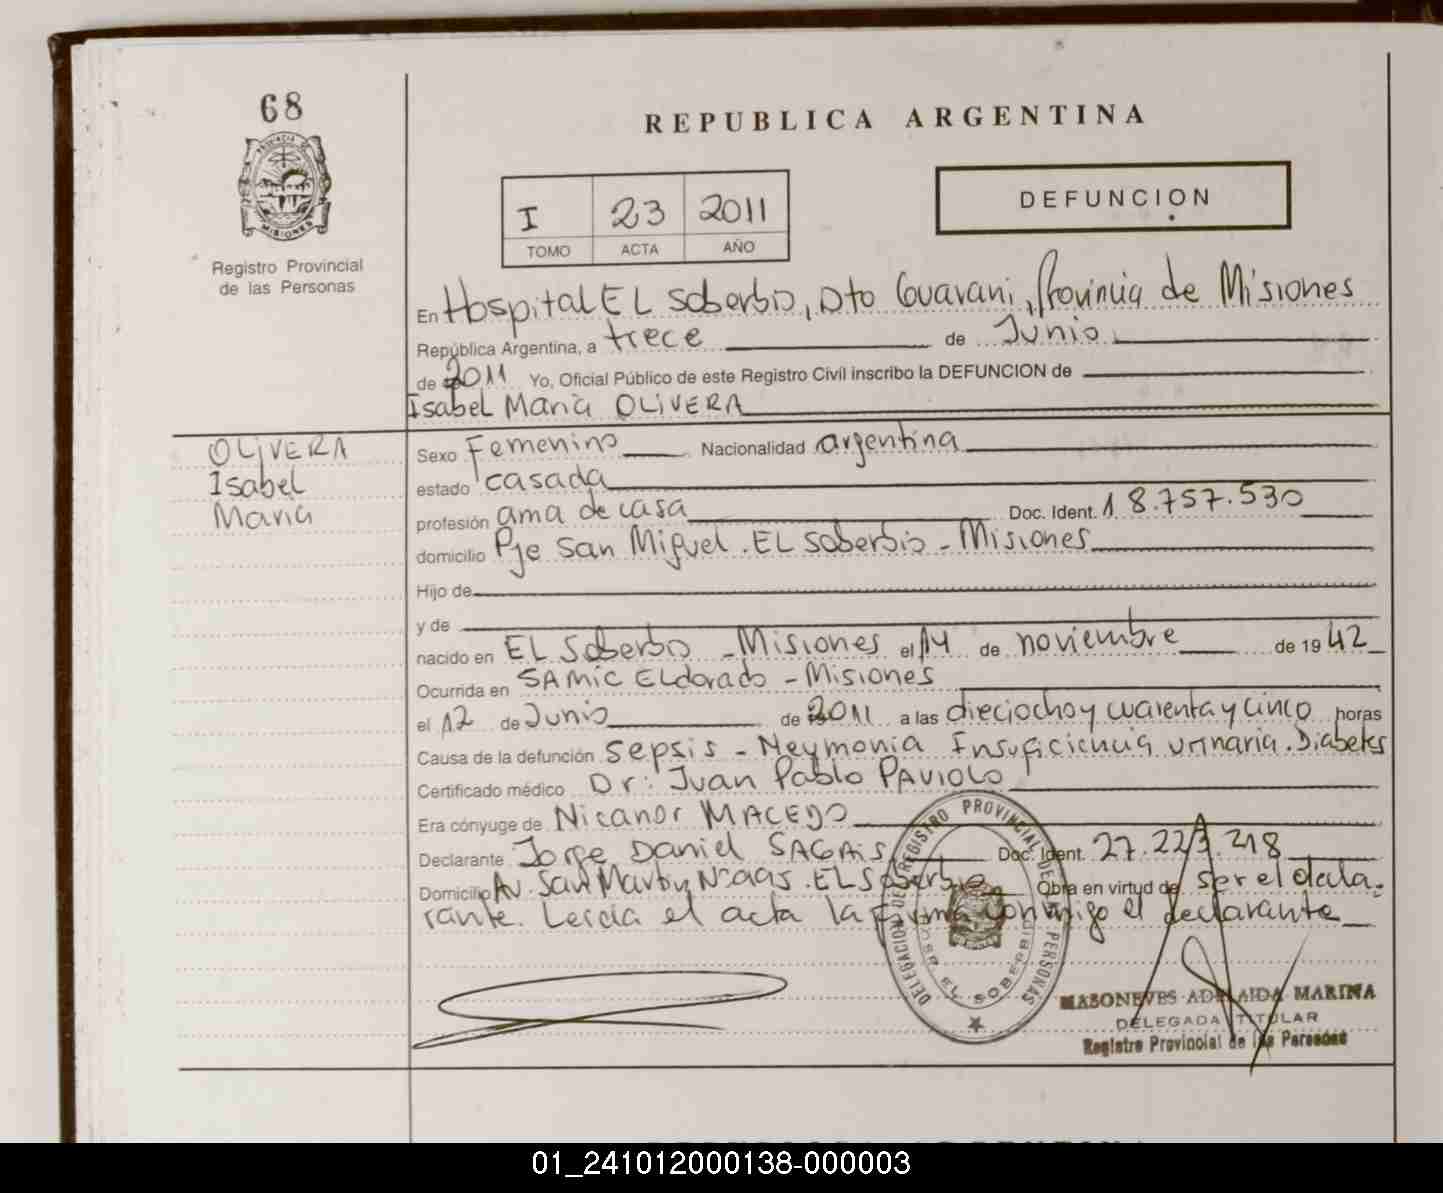 68
REPUBLICA ARGENTINA
PROVINCIA DE MISIONES
Registro Provincial
de las Personas
I 23 2011
TOMO ACTA AÑO
DEFUNCION
En Hospital EL Soberbio, Dto Guarani, Provincia de Misiones
República Argentina, a trece de Junio
de 2011 Yo, Oficial Público de este Registro Civil inscribo la DEFUNCION de
Isabel Maria OLIVERA
OLIVERA
Isabel
Maria
Sexo Femenino Nacionalidad argentina
estado casada
profesión ama de casa Doc. Ident. 18.757.530
domicilio Pje San Miguel. EL Soberbio - Misiones
Hijo de
y de
nacido en EL Soberbio - Misiones el 14 de noviembre de 1942
Ocurrida en SAMIC ELdorado - Misiones
el 12 de Junio de 2011 a las dieciocho y cuarenta y cinco horas
Causa de la defunción Sepsis - Neymonia Insuficiencia urinaria. Diabetes
Certificado médico Dr: Juan Pablo PAVIOLO
Era cónyuge de Nicanor MACEDO
Declarante Jorge Daniel SAGAIS Doc. Ident. 27.223.218
Domicilio Av. San Martin EL Soberbio Obra en virtud de ser el decla-
rante. Leida el acta la firma conmigo el declarante
DELEGACION DE REGISTRO PROVINCIAL DE PERSONAS
EL SOBERBIO
MASONEVES ADELAIDA MARINA
DELEGADA TITULAR
Registro Provincial de las Personas
01_241012000138-000003